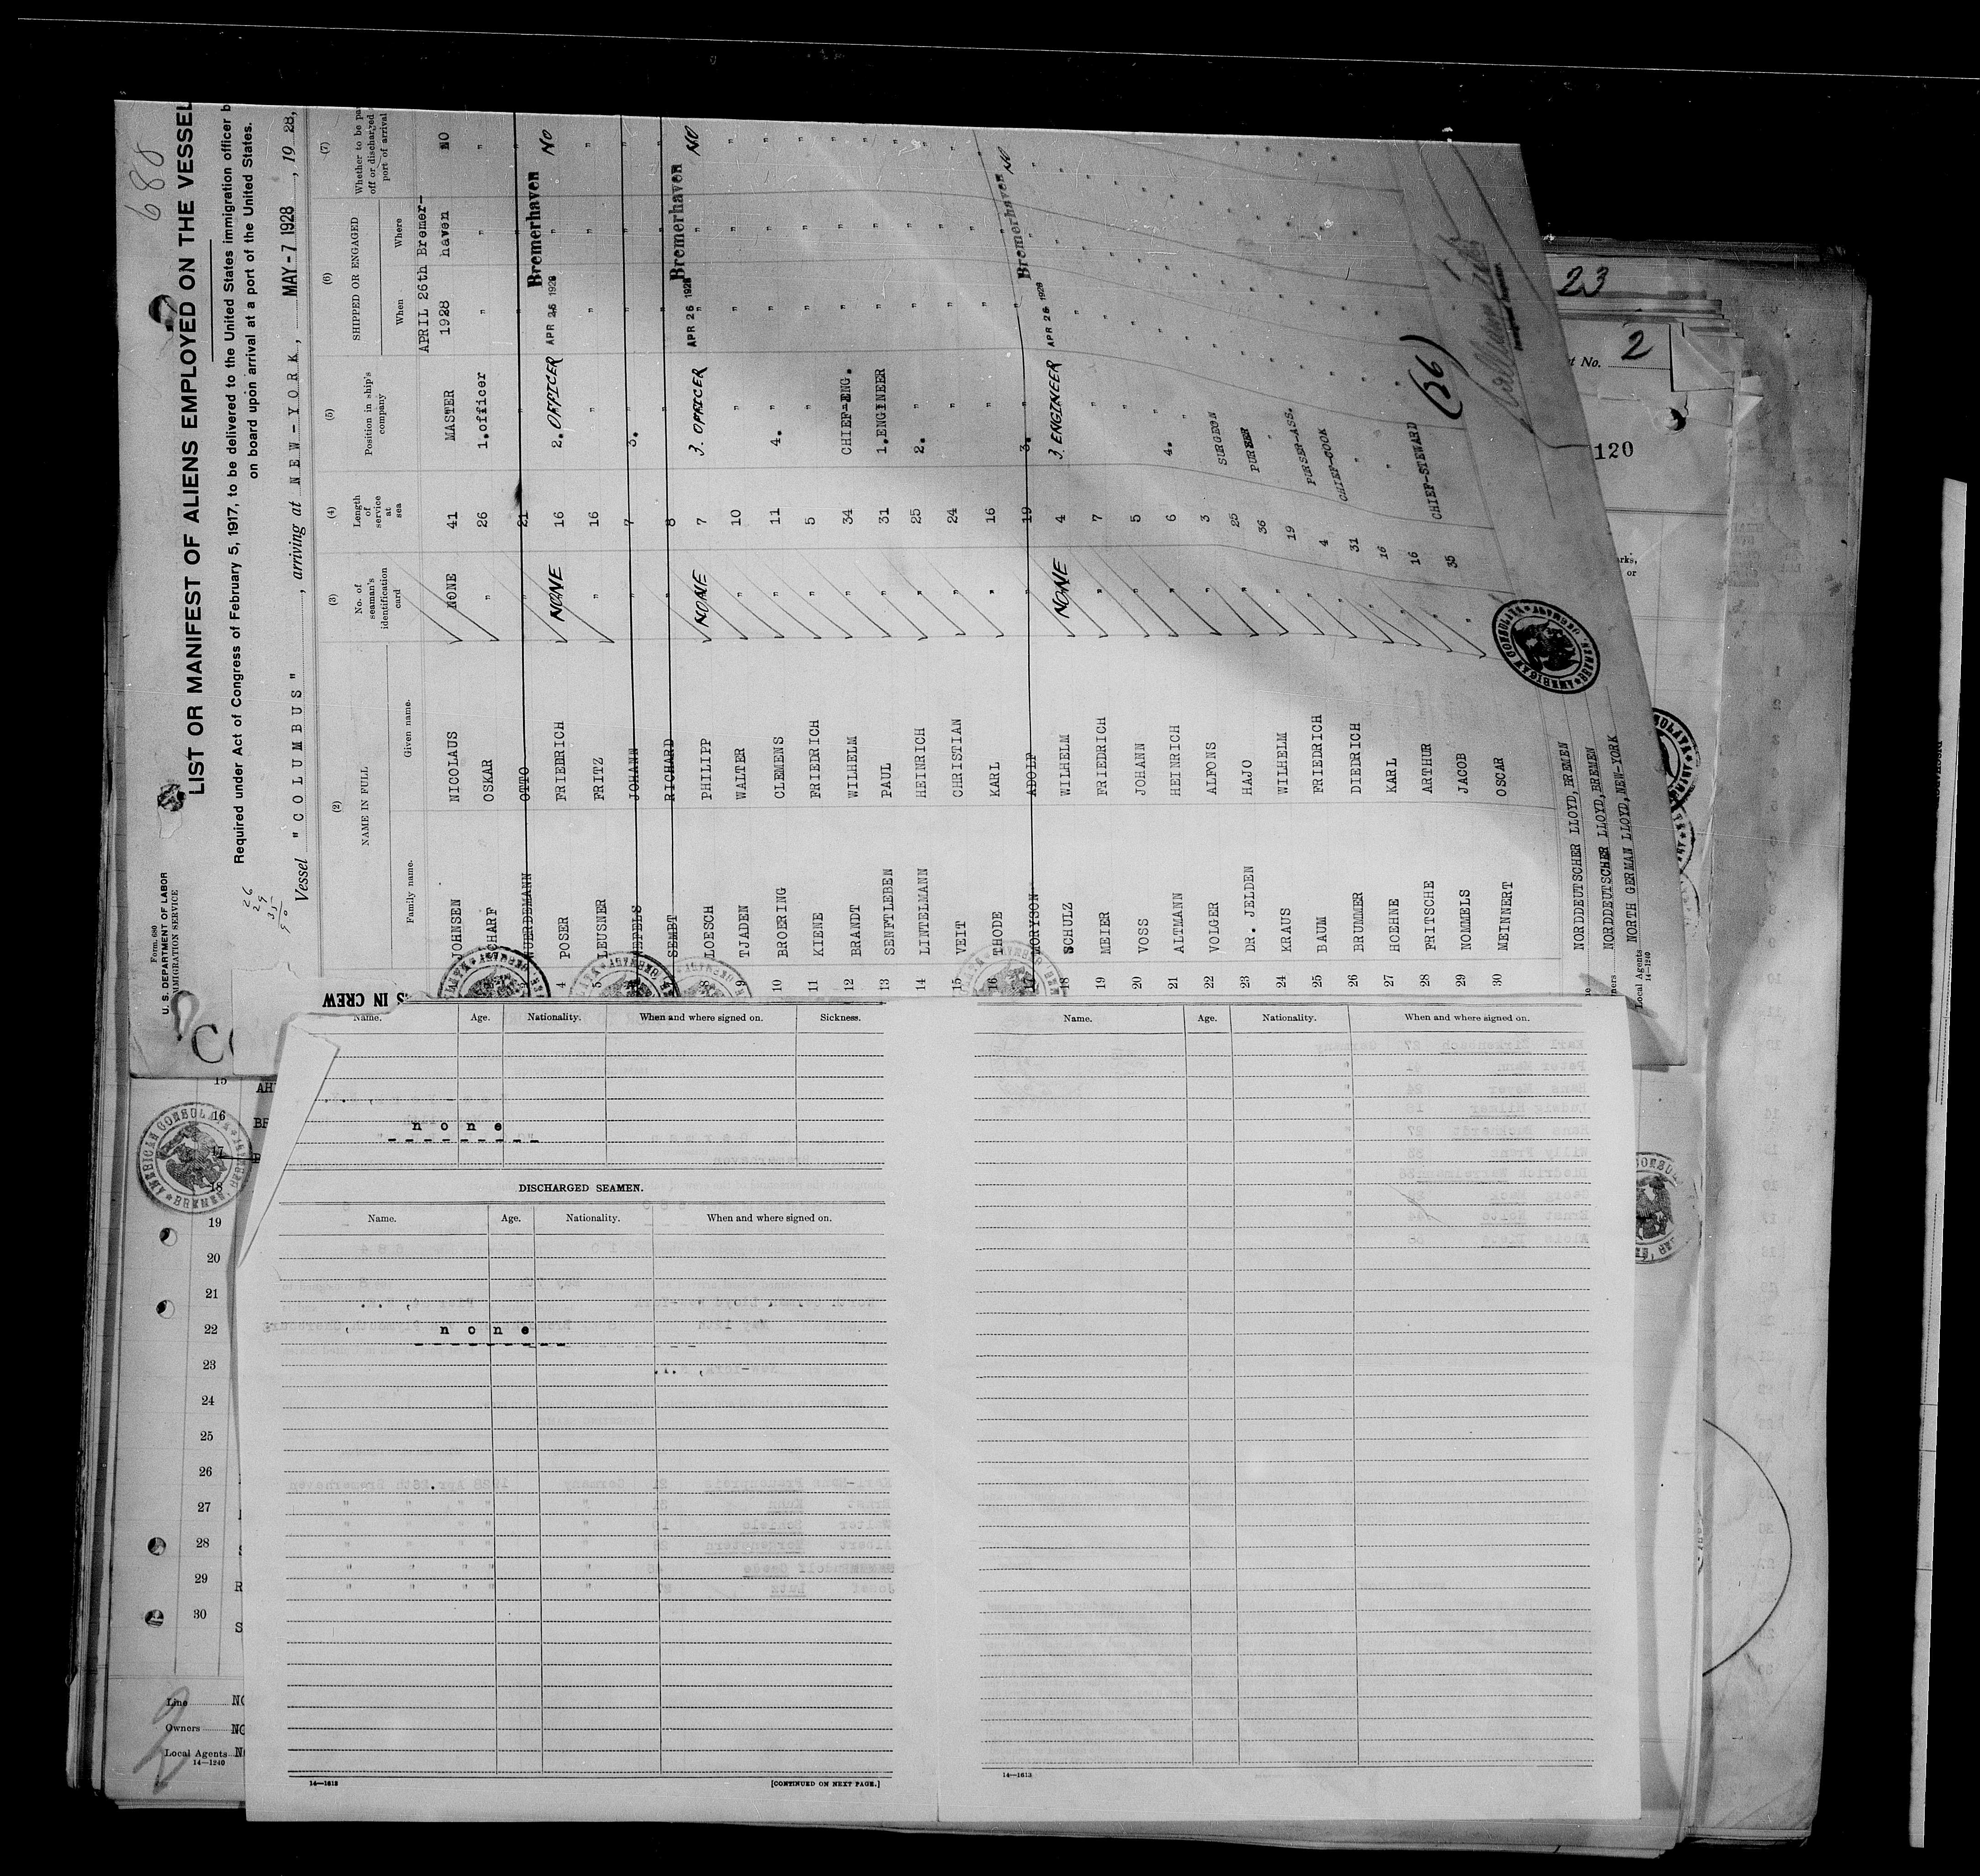 688
Form 680
U. S. DEPARTMENT OF LABOR
IMMIGRATION SERVICE
LIST OR MANIFEST OF ALIENS EMPLOYED ON THE VESSEL
Required under Act of Congress of February 5, 1917, to be delivered to the United States immigration officer b
on board upon arrival at a port of the United States.
26
29
35
Vessel "COLUMBUS", arriving at NEW-YORK, MAY-7 1928, 19 28,
(2) (3) (4) (5) (6) (7)
NAME IN FULL
Family name. Given name.
No. of seaman's identification card
Length of service at sea
Position in ship's company
SHIPPED OR ENGAGED
When Where
Whether to be pa
off or discharged
port of arrival
JOHNSEN NICOLAUS NONE 41 MASTER APRIL 26th 1928 Bremer-haven NO
CHARF OSKAR " 26 1.officer " " "
3 WUERDEMANN OTTO " 21 " " "
4 POSER FRIEDRICH NONE 16 2. OFFICER APR 26 1928 Bremerhaven NO
5 LEUSNER FRITZ " 16 " " " "
NEPELS JOHANN " 7 3. " " " "
SEMBT RICHARD " 8 " " " "
8 LOESCH PHILIPP NONE 7 3. OFFICER APR 26 1928 Bremerhaven NO
9 TJADEN WALTER " 10 " " " "
10 BROERING CLEMENS " 11 4. " " " "
11 KIENE FRIEDRICH " 5 " " " "
12 BRANDT WILHELM " 34 CHIEF-ENG. " " "
13 SENFTLEBEN PAUL " 31 1.ENGINEER " " "
14 LINTELMANN HEINRICH " 25 2. " " " "
15 VEIT CHRISTIAN " 24 " " " "
16 THODE KARL " 16 " " " "
17 MORYSON ADOLF " 19 3. " " " "
18 SCHULZ WILHELM NONE 4 3 ENGINEER APR 26 1928 Bremerhaven NO
19 MEIER FRIEDRICH " 7 " " " "
20 VOSS JOHANN " 5 " " " "
21 ALTMANN HEINRICH " 6 4. " " " "
22 VOLGER ALFONS " 3 SURGEON " " "
23 DR. JELDEN HAJO " 25 PURSER " " "
24 KRAUS WILHELM " 36 " " " "
25 BAUM FRIEDRICH " 19 PURSER-ASS. " " "
26 BRUMMER DIEDRICH " 4 CHIEF-COOK " " "
27 HOEHNE KARL " 31 " " " "
28 FRITSCHE ARTHUR " 16 " " " "
29 NOMMELS JACOB " 16 CHIEF-STEWARD " " "
30 MEINNERT OSCAR " 35
(26)
NORDDEUTSCHER LLOYD, BREMEN
NORDDEUTSCHER LLOYD, BREMEN
Local Agents NORTH GERMAN LLOYD, NEW-YORK
14—1240
AMERICAN CONSULATE
BREMEN, GERMANY
23
t No. 2
120
arks,
or
S IN CREW
Name. Age. Nationality. When and where signed on. Sickness.
none
DISCHARGED SEAMEN.
Name. Age. Nationality. When and where signed on.
none
14—1613 [CONTINUED ON NEXT PAGE.]
Name. Age. Nationality. When and where signed on.
14—1613
15 AH
16
17
18
19
20
21
22
23
24
25
26
27
28
29 R
30 S
AMERICAN CONSULATE
BREMEN,
Line NO
Owners NO
Local Agents N
14—1240
2